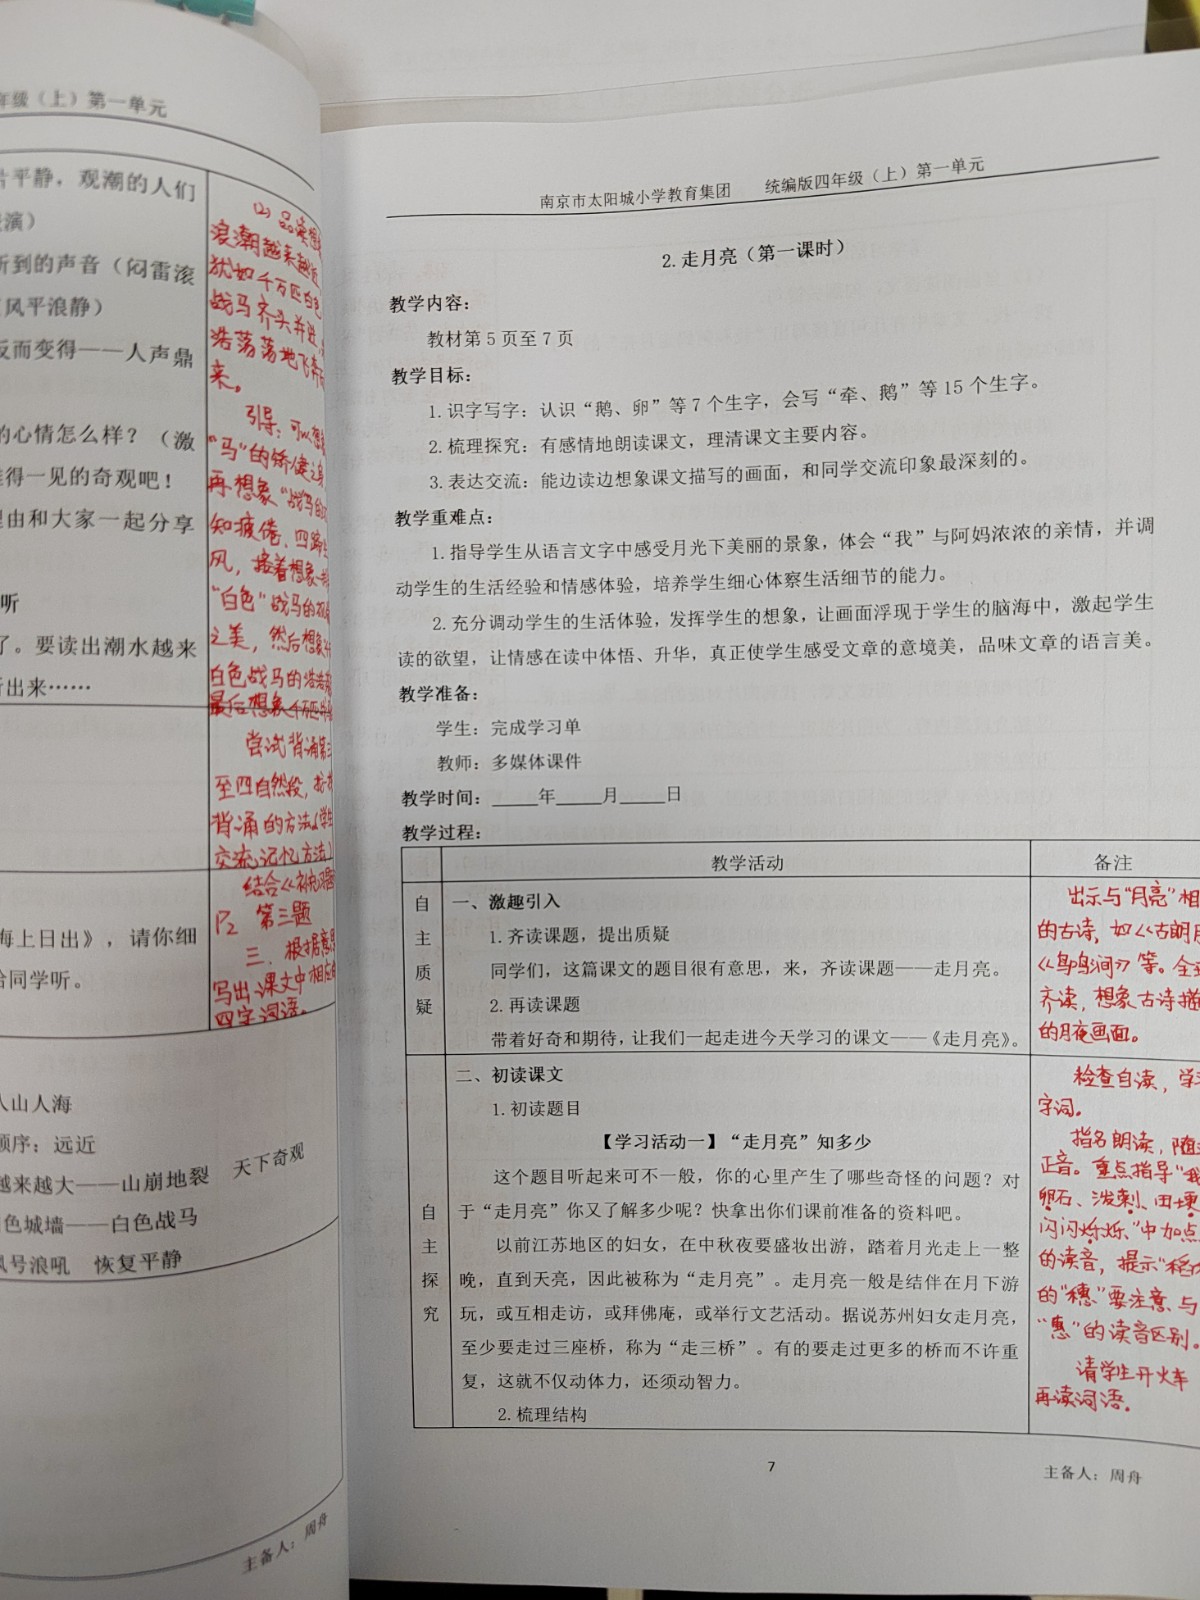 年级（上）第一单元
片平静，观潮的人们
演）
听到的声音（闷雷滚
风平浪静）
反而变得——人声鼎
的心情怎么样？（激
难得一见的奇观吧！
理由和大家一起分享
听
了。要读出潮水越来
听出来……
海上日出》，请你细
给同学听。
人山人海
顺序：远近
越来越大——山崩地裂
天下奇观
白色城墙——白色战马
风号浪吼 恢复平静
主备人：周舟
(2) 品读想
浪潮越来越近
犹如千万匹白色
战马齐头并进，
浩荡荡地飞奔而
来。
引导：可以想
“马”的矫健之
再想象“战马的
知疲倦、四蹄生
风，接着想象一
“白色”战马的
之美，然后想象
白色战马的浩浩荡
最后想象千万匹
尝试背诵第三
至四自然段，
背诵的方法（学生
交流记忆方法）
结合《补充习题》
P2 第三题
三、根据意思
写出课文中相应的
四字词语。
南京市太阳城小学教育集团 统编版四年级（上）第一单元
2.走月亮（第一课时）
教学内容：
教材第 5 页至 7 页
教学目标：
1.识字写字：认识“鹅、卵”等 7 个生字，会写“牵、鹅”等 15 个生字。
2.梳理探究：有感情地朗读课文，理清课文主要内容。
3.表达交流：能边读边想象课文描写的画面，和同学交流印象最深刻的。
教学重难点：
1.指导学生从语言文字中感受月光下美丽的景象，体会“我”与阿妈浓浓的亲情，并调
动学生的生活经验和情感体验，培养学生细心体察生活细节的能力。
2.充分调动学生的生活体验，发挥学生的想象，让画面浮现于学生的脑海中，激起学生
读的欲望，让情感在读中体悟、升华，真正使学生感受文章的意境美，品味文章的语言美。
教学准备：
学生：完成学习单
教师：多媒体课件
教学时间：____年____月____日
教学过程：
教学活动 备注
自主质疑
一、激趣引入
1.齐读课题，提出质疑
同学们，这篇课文的题目很有意思，来，齐读课题——走月亮。
2.再读课题
带着好奇和期待，让我们一起走进今天学习的课文——《走月亮》。
出示与“月亮”相
的古诗，如《古朗月
《鸟鸣涧》等。全
齐读，想象古诗描
的月夜画面。
自主探究
二、初读课文
1.初读题目
【学习活动一】“走月亮”知多少
这个题目听起来可不一般，你的心里产生了哪些奇怪的问题？对
于“走月亮”你又了解多少呢？快拿出你们课前准备的资料吧。
以前江苏地区的妇女，在中秋夜要盛妆出游，踏着月光走上一整
晚，直到天亮，因此被称为“走月亮”。走月亮一般是结伴在月下游
玩，或互相走访，或拜佛庵，或举行文艺活动。据说苏州妇女走月亮，
至少要走过三座桥，称为“走三桥”。有的要走过更多的桥而不许重
复，这就不仅动体力，还须动智力。
2.梳理结构
检查自读，学
字词。
指名朗读，随
正音。重点指导“
卵石、泼剌、田埂
闪闪烁烁”中加点
的读音，提示“稻
的“穗”要注意与
“惠”的读音区别。
请学生开火车
再读词语。
7
主备人：周舟